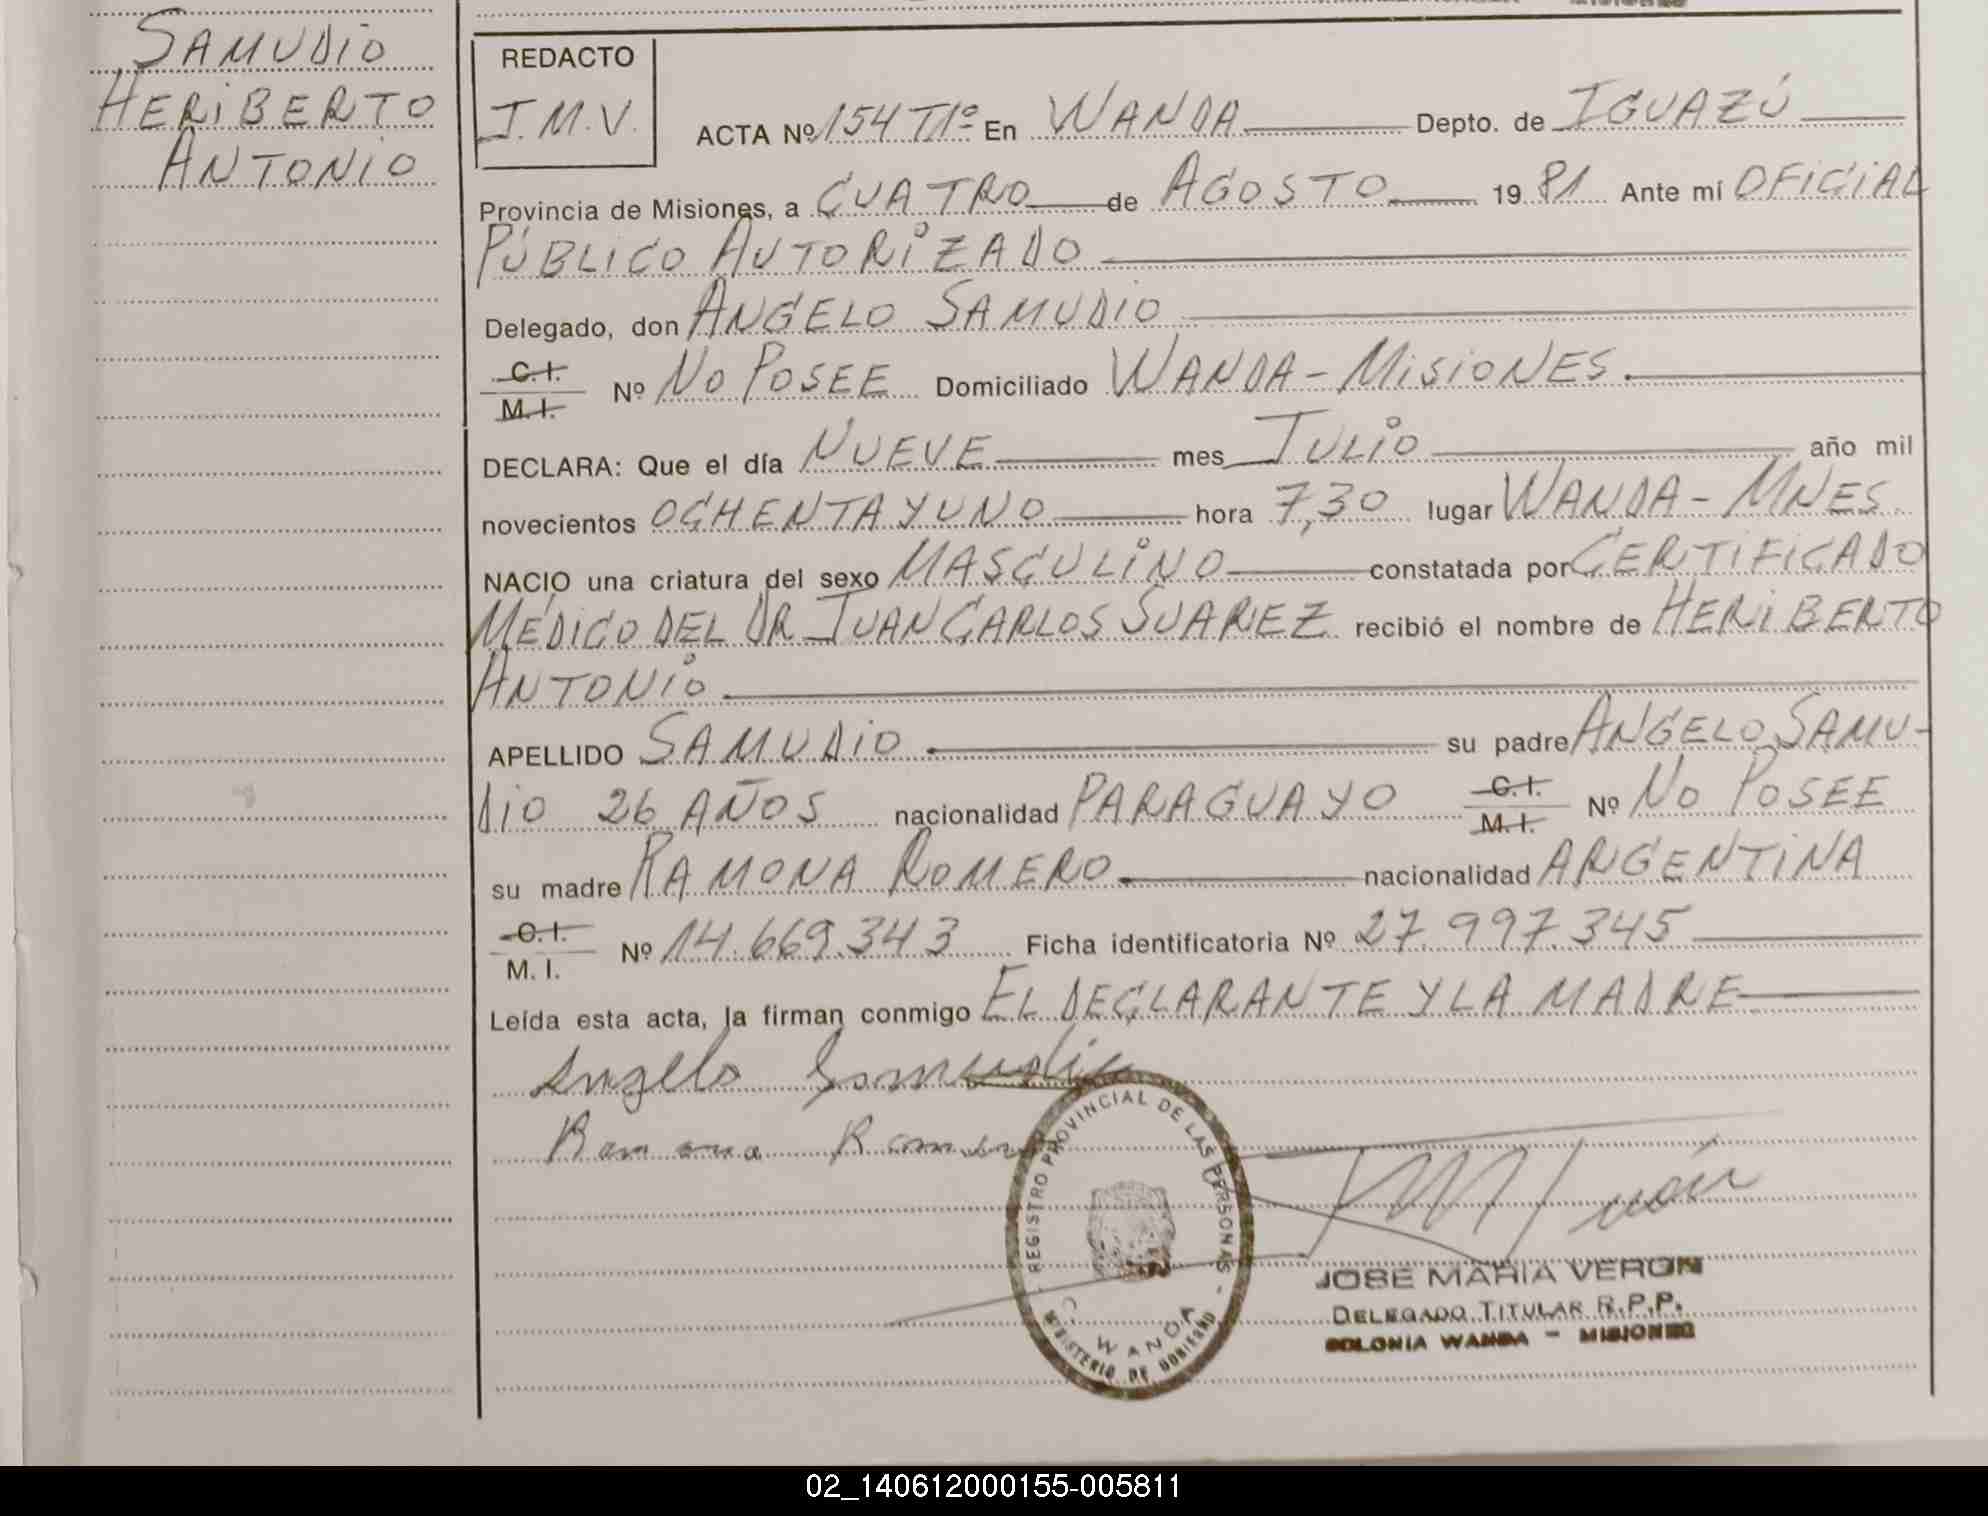 SAMUDIO
HERIBERTO
ANTONIO
REDACTO
J.M.V.
ACTA Nº 154 T1º En WANDA Depto. de IGUAZÚ
Provincia de Misiones, a CUATRO de AGOSTO 1981 Ante mí OFICIAL
PÚBLICO AUTORIZADO
Delegado, don ANGELO SAMUDIO
C.I.
M.I. Nº NO POSEE Domiciliado WANDA - MISIONES.
DECLARA: Que el día NUEVE mes JULIO año mil
novecientos OCHENTA Y UNO hora 7,30 lugar WANDA - MNES
NACIO una criatura del sexo MASCULINO constatada por CERTIFICADO
MÉDICO DEL DR JUAN CARLOS SUAREZ recibió el nombre de HERIBERTO
ANTONIO
APELLIDO SAMUDIO su padre ANGELO SAMU-
DIO 26 AÑOS nacionalidad PARAGUAYO C.I. M.I. Nº NO POSEE
su madre RAMONA ROMERO nacionalidad ARGENTINA
C.I.
M.I. Nº 14.669.343 Ficha identificatoria Nº 27.997.345
Leída esta acta, la firman conmigo EL DECLARANTE Y LA MADRE
Angelo Samudio
Ramona Romero
REGISTRO PROVINCIAL DE LAS PERSONAS
C. WANDA
MINISTERIO DE GOBIERNO
JOSE MARIA VERON
DELEGADO TITULAR R.P.P.
COLONIA WANDA - MISIONES
02_140612000155-005811